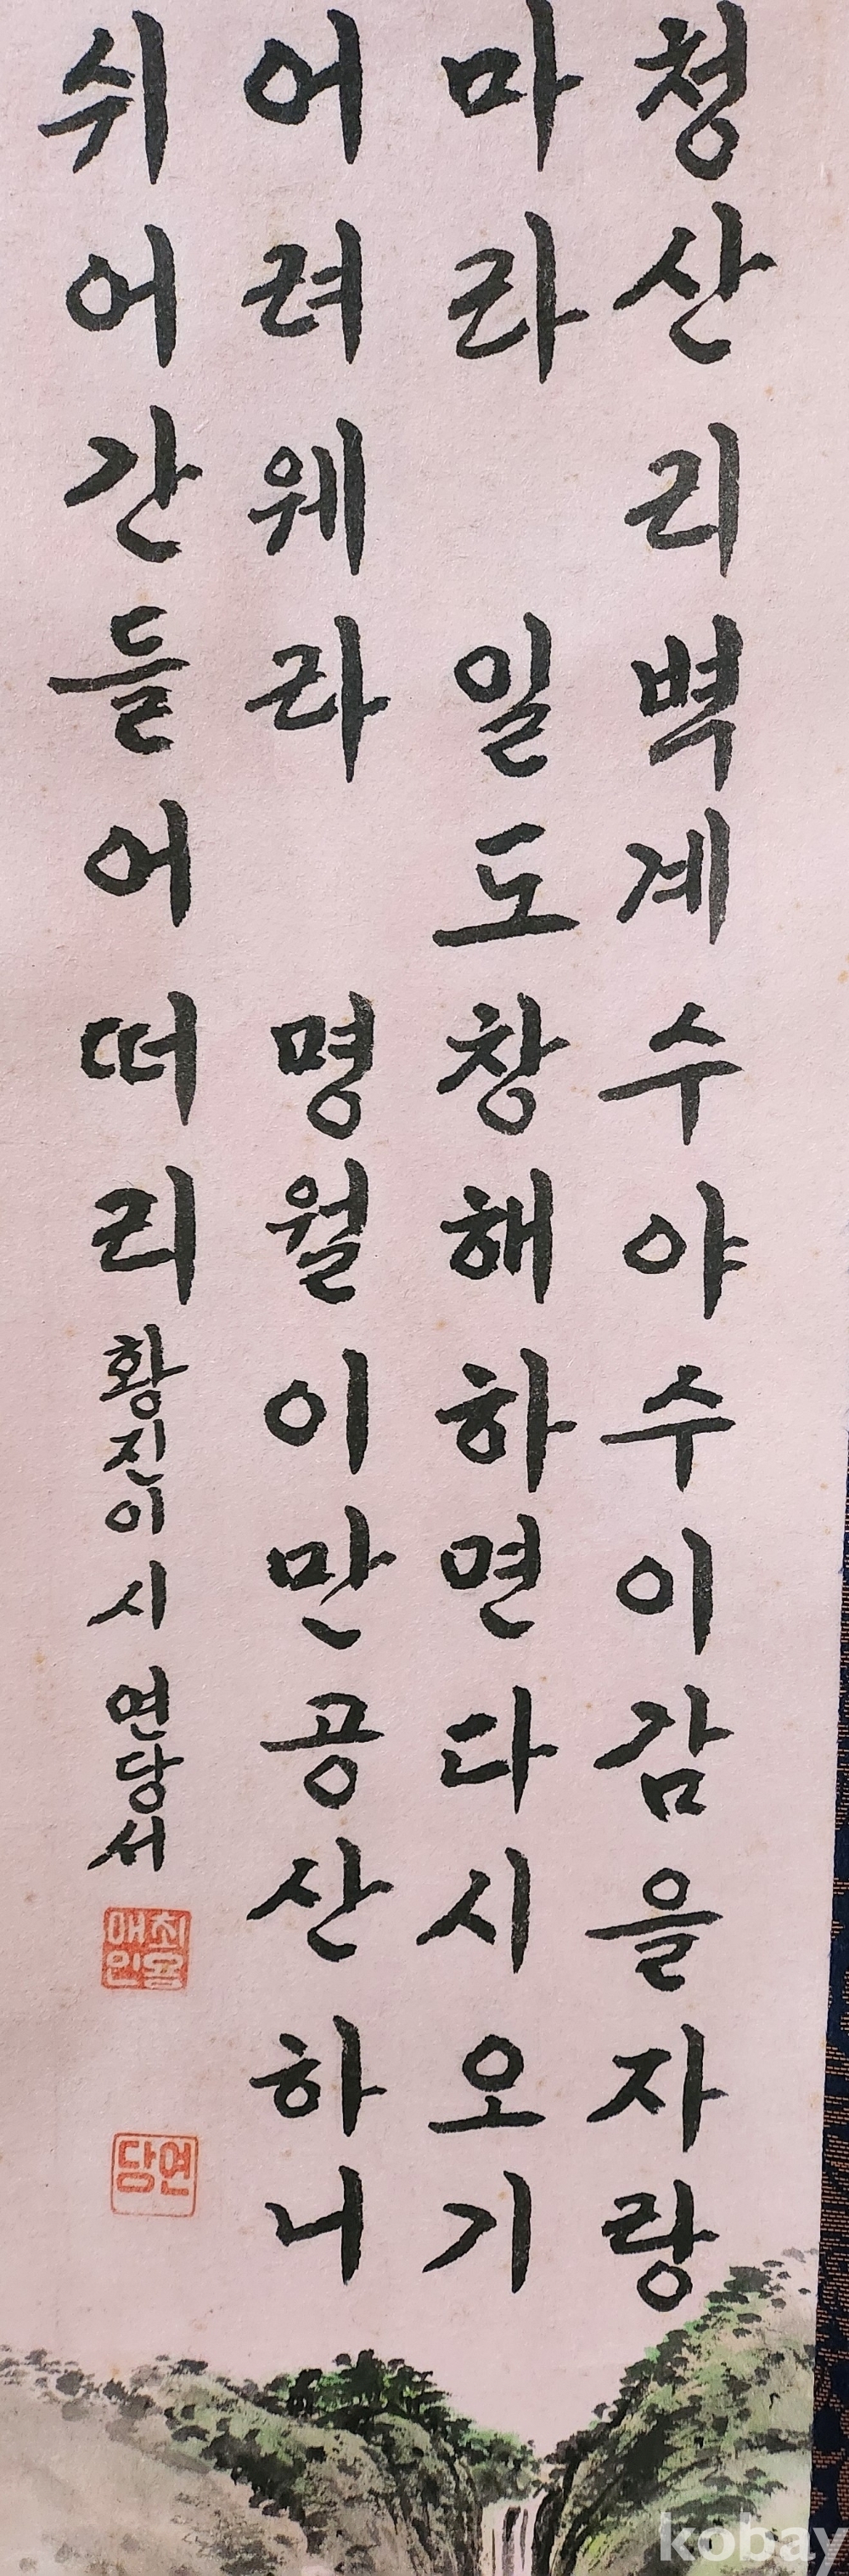 청산리벽계수야수이감을자랑
마라 일도창해하면다시오기
어려웨라 명월이만공산하니
쉬어간들어떠리 황진이 시 연당서
최용매인
연당
kobay